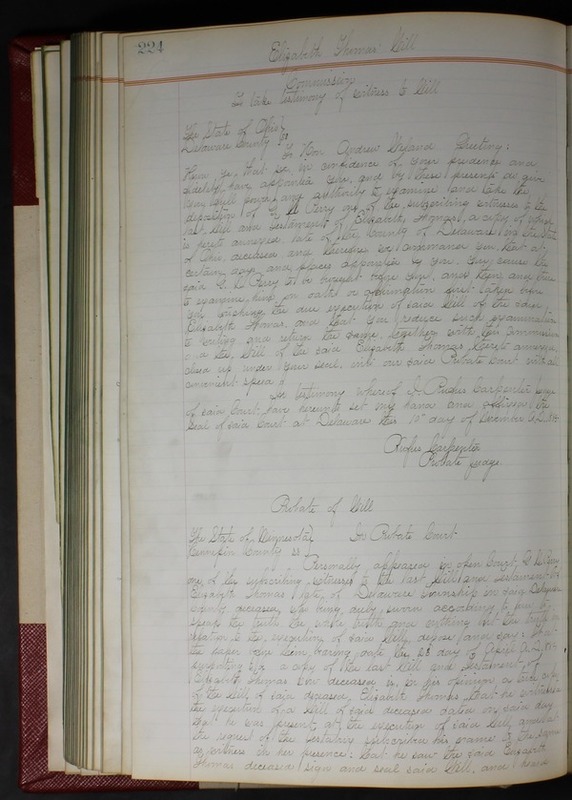 224
Elizabeth Thomas' Will
Commission
To take testimony of witness to Will
The State of Ohio
Delaware County ss
To Hon. Andrew Greeting:
Know ye, that we, in confidence of your prudence and
fidelity have appointed you, and by these presents do give
you full power and authority to examine and take the
deposition of Perry one of the subscribing witnesses to the
last Will and Testament of Elizabeth Thomas, a copy of which
is hereto annexed, late of the County of Delaware, in the State
of Ohio, deceased and therefore we command you, that at
certain days and places appointed by you, you cause the
said Perry to be brought before you, and then and there
to examine him on oath or affirmation first taken before
you touching the due execution of said Will of the said
Elizabeth Thomas, and that you reduce such examination
to writing and return the same, together with this commission
and the Will of the said Elizabeth Thomas, thereto annexed,
closed up under your seal, into our said Probate Court with all
convenient speed.
In testimony whereof I, Rufus Carpenter judge
of said Court, have hereunto set my hand and affixed the
seal of said Court at Delaware this day of December A.D.
Rufus Carpenter
Probate Judge.
Probate of Will
The State of Minnesota
Hennepin County ss
In Probate Court
Personally appeared in open Court, Perry
one of the subscribing witnesses to the last Will and Testament of
Elizabeth Thomas late of Delaware Township in said Delaware
County deceased, who being duly sworn according to law to
speak the truth the whole truth and nothing but the truth in
relation to the execution of said Will, depose and say: that
the paper before him, bearing date the day of April A.D.
purporting to be a copy of the last Will and Testament of
Elizabeth Thomas now deceased is, in his opinion, a true copy
of the Will of said deceased, Elizabeth Thomas, that he witnessed
the execution of a Will of said deceased dated on said day
that he was present at the execution of said Will, and at
the request of the testatrix subscribed his name to the same
as witness in her presence: that he saw the said Elizabeth
Thomas deceased sign and seal said Will, and heard